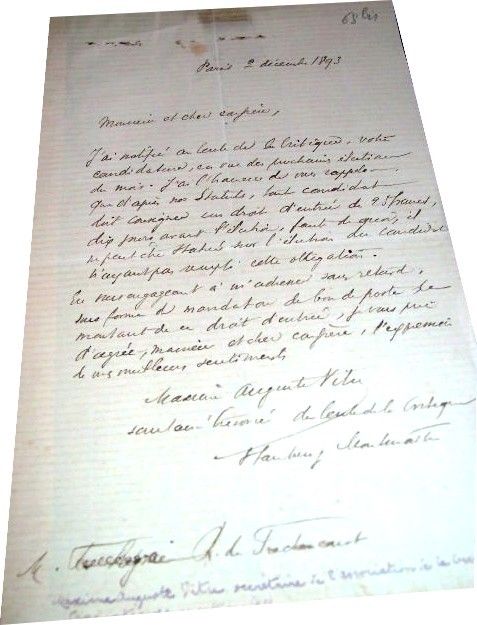 68 bis
Paris 2 décembre 1893
Monsieur et cher confrère,
J'ai notifié au Cercle de la Critique, votre
candidature, en vue des prochaines élections
du mois. J'ai l'honneur de vous rappeler
que d'après nos Statuts, tout candidat
doit consigner un droit d'entrée de 25 francs,
dix jours avant l'élection, faute de quoi, il
ne peut être statué sur l'élection du candidat
n'ayant pas rempli cette obligation.
En vous engageant à m'adresser sans retard,
sous forme de mandat ou de bon de poste le
montant de ce droit d'entrée, je vous prie
d'agréer, monsieur et cher confrère, l'expression
de mes meilleurs sentiments
Maxime Auguste Vitu
secrétaire trésorier du Cercle de la Critique
M. R. de
Maxime Auguste Vitu, secrétaire de l'association de la